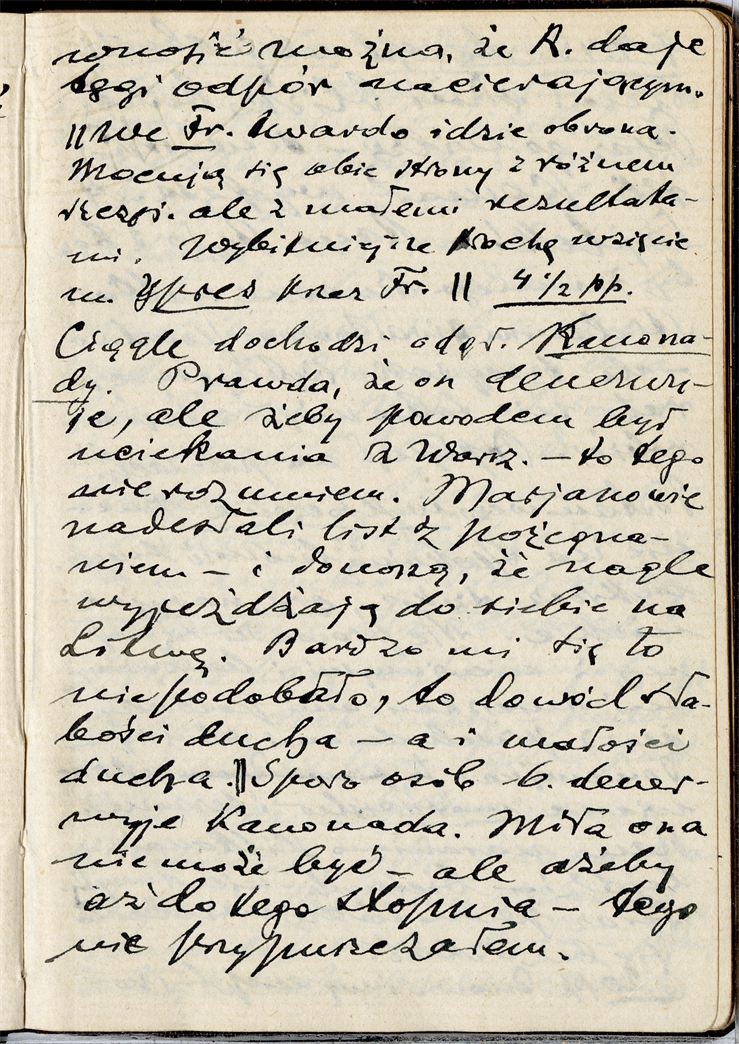 wnosić można, że R. daje
tęgi odpór nacierającym.
|| We Fr. twardo idzie obrona.
Mocują się obie strony z różnem
szczęś. ale z małemi rezultata-
mi. Wybitniejsze trochę wzięcie
m. Ypres przez Fr. || 4 1/2 pp.
Ciągle dochodzi odgł. Kanona-
dy. Prawda, że on denerwu-
je, ale żeby powodem był
uciekania z Warsz. – to tego
nie rozumiem. Marjanowie
nadesłali list z pożegna-
niem – i donoszą, że nagle
wyjeżdżają do siebie na
Litwę. Bardzo mi się to
niepodobało, to dowód sła-
bości ducha – a i małości
ducha. || Sporo osób b. dener-
wuje Kanonada. Miła ona
nie może być – ale ażeby
aż do tego stopnia – tego
nie przypuszczałem.